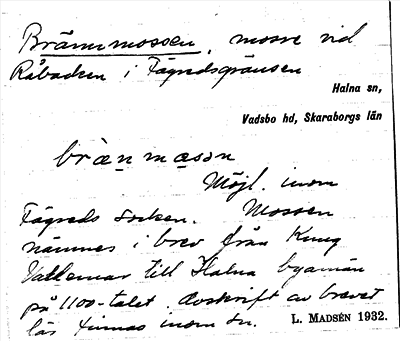 Brämmossen, mosse vid
Råbacken i Fägredsgränsen
Halna sn,
Vadsbo hd, Skaraborgs län
bræ̀nmæsən
Möjl. inom
Fägreds socken. Mossen
nämnes i brev från Kung
Valdemar till Halna byamän
på 1100-talet. Avskrift av brevet
lär finnas inom sn.
L. MADSÉN 1932.